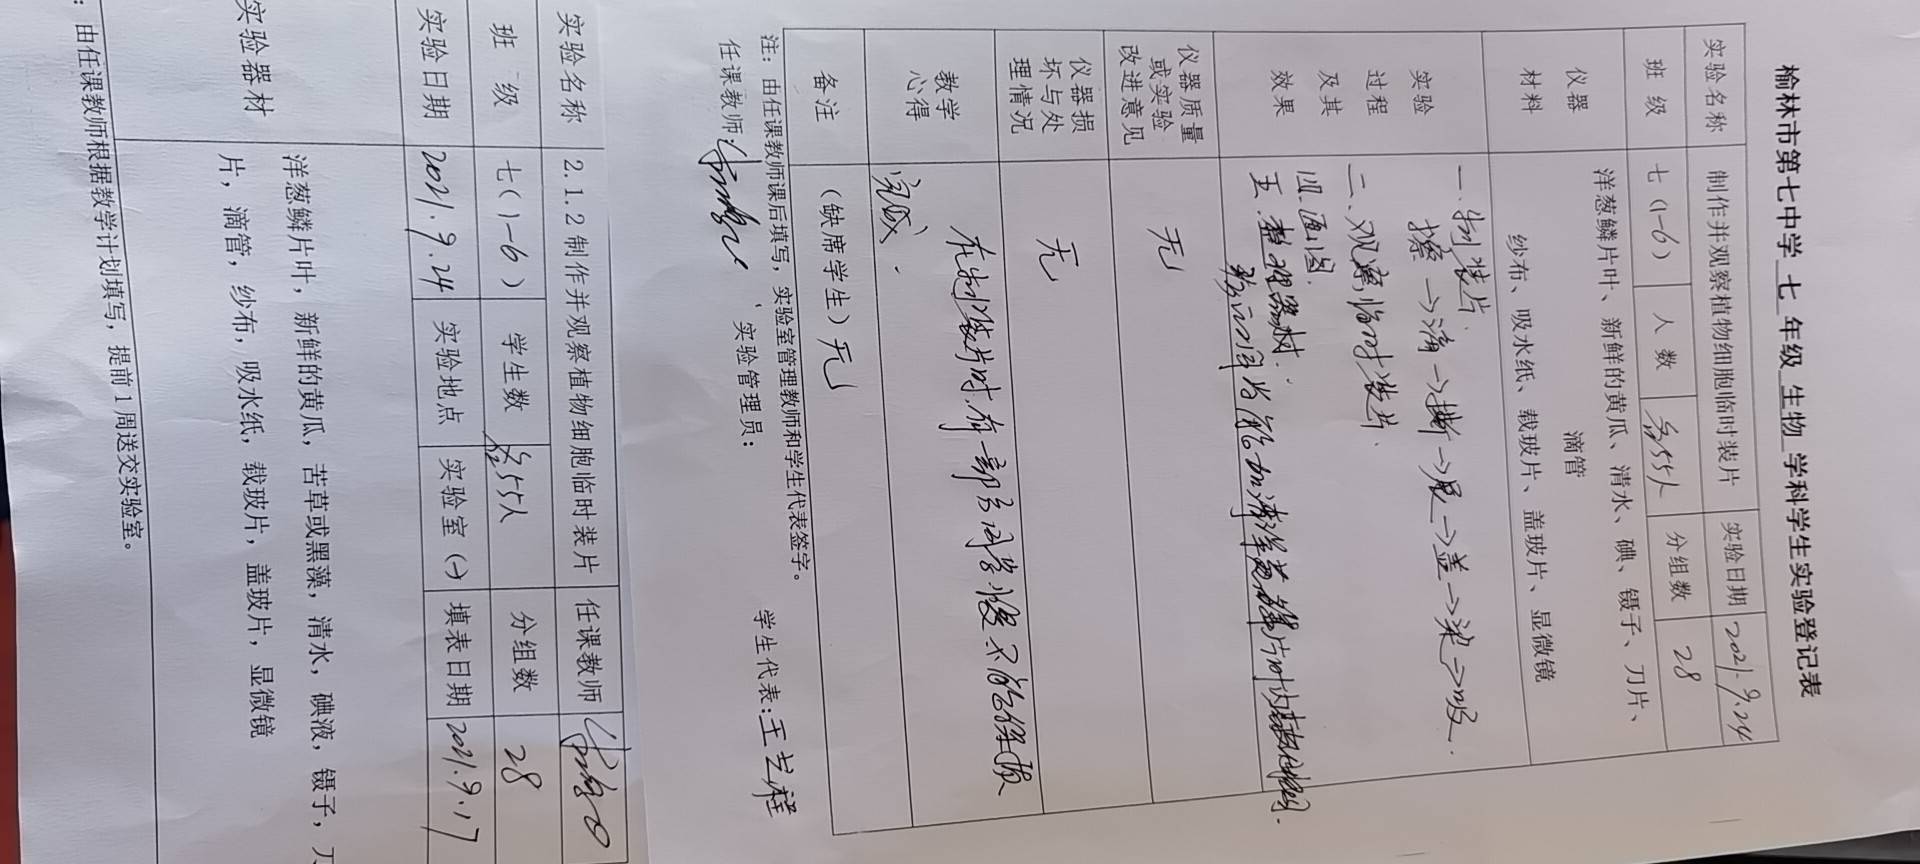 榆林市第七中学 七 年级 生物 学科学生实验登记表
实验名称 制作并观察植物细胞临时装片 实验日期 2021.9.24
班 级 七(1-6) 人 数 各55人 分组数 28
仪器材料 洋葱鳞片叶、新鲜的黄瓜、清水、碘、镊子、刀片、滴管
纱布、吸水纸、载玻片、盖玻片、显微镜
实验过程及其效果
一.制装片.
擦→滴→撕→展→盖→染→吸.
二.观察临时装片.
四.画图.
五.整理器材.
仪器质量或实验改进意见 无
仪器损坏与处理情况 无
教学心得 在制装片时,有一部分同学慢不能按质
完成.
备注 (缺席学生)无
注:由任课教师课后填写,实验室管理教师和学生代表签字。
任课教师: 实验管理员: 学生代表:王艺程
实验名称 2.1.2制作并观察植物细胞临时装片 任课教师
班 级 七(1-6) 学生数 各55人 分组数 28
实验日期 2021.9.24 实验地点 实验室(一) 填表日期 2021.9.17
实验器材 洋葱鳞片叶,新鲜的黄瓜,苦草或黑藻,清水,碘液,镊子,刀
片,滴管,纱布,吸水纸,载玻片,盖玻片,显微镜
:由任课教师根据教学计划填写,提前1周送交实验室。